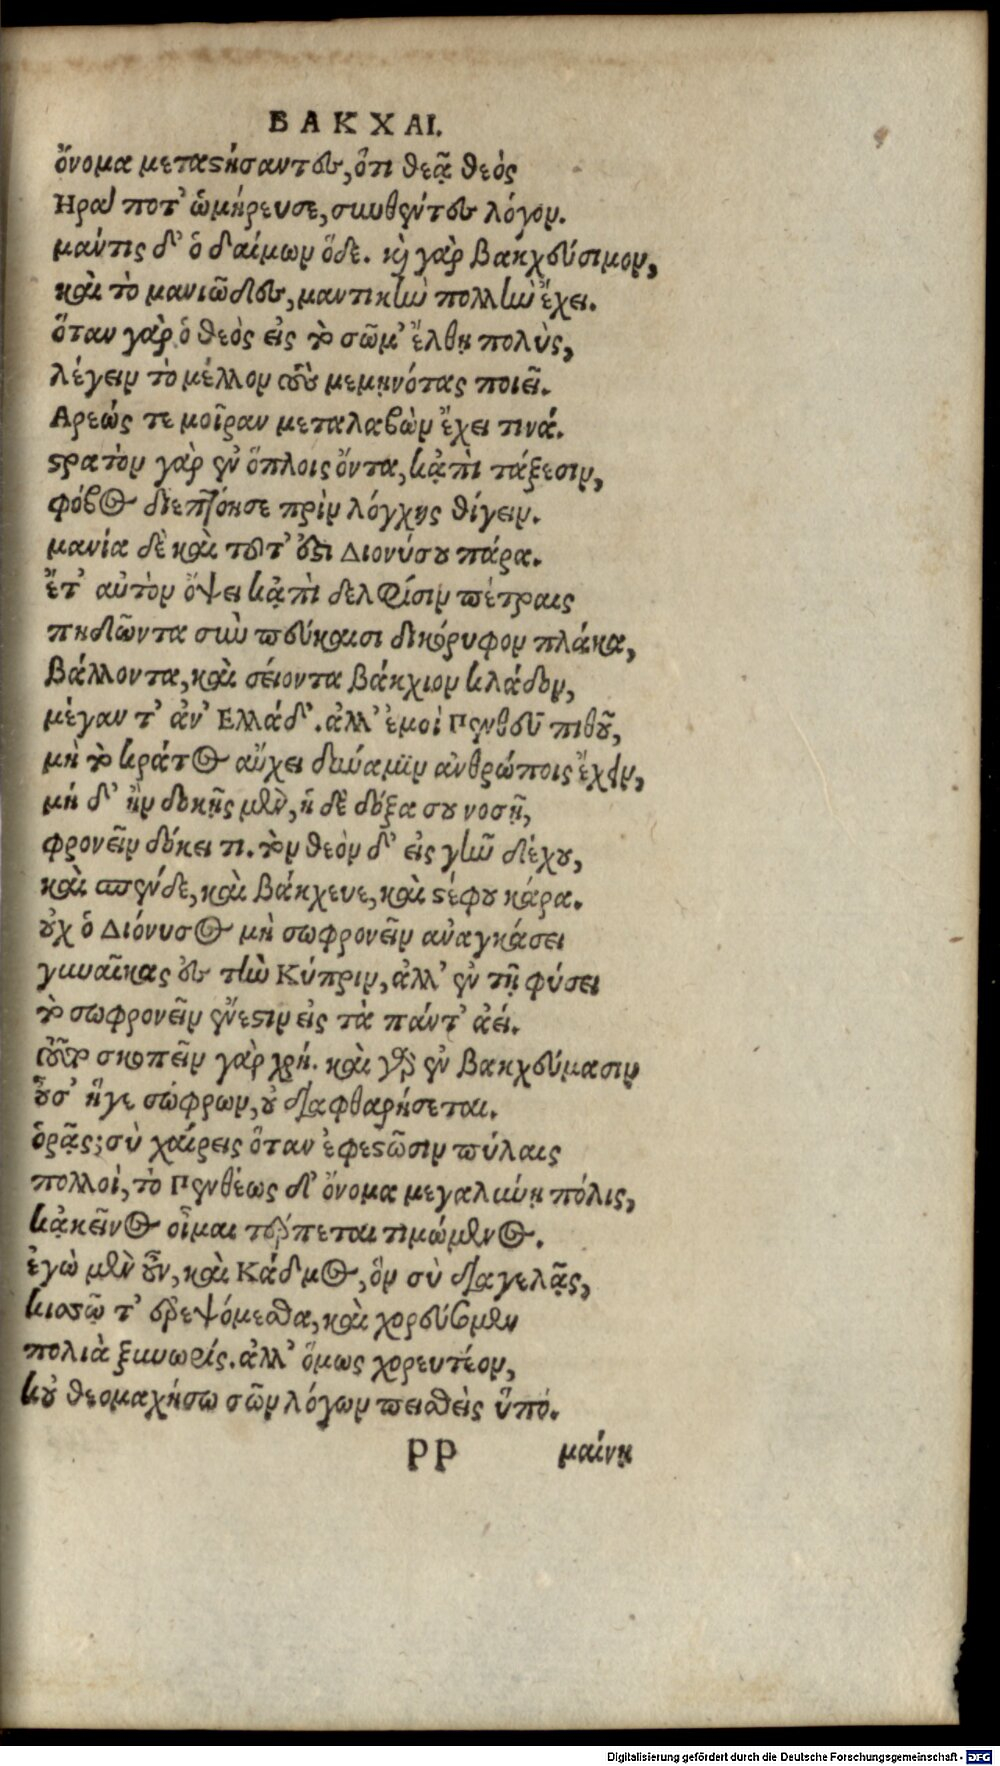 ΒΑΚΧΑΙ.
ὄνομα μεταϛήσαντες, ὅτι θεᾷ θεὸς
Ηρᾳ ποτ' ὡμήρευσε, συνθέντες λόγον.
μάντις δ' ὁ δαίμων ὅδε. καὶ γὰρ βακχεύσιμον,
καὶ τὸ μανιῶδες, μαντικὴν πολλὴν ἔχει.
ὅταν γὰρ ὁ θεὸς εἰς τὸ σῶμ' ἔλθῃ πολὺς,
λέγειν τὸ μέλλον τοὺς μεμηνότας ποιεῖ.
Αρεώς τε μοῖραν μεταλαβὼν ἔχει τινά.
ϛρατὸν γὰρ ἐν ὅπλοις ὄντα, κᾀπὶ τάξεσιν,
φόβος διεπτόησε πρὶν λόγχης θίγειν.
μανία δὲ καὶ τοῦτ' ἐϛὶ Διονύσου πάρα.
ἔτ' αὐτὸν ὄψει κᾀπὶ δελφίσιν πέτραις
πηδῶντα σὺν πεύκαισι δικόρυφον πλάκα,
βάλλοντα, καὶ σείοντα βάκχιον κλάδον,
μέγαν τ' ἀν' Ελλάδ'. ἀλλ' ἐμοὶ Πενθεῦ πιθοῦ,
μὴ τὸ κράτος αὔχει δύναμιν ἀνθρώποις ἔχειν,
μή δ' ἢν δοκῇς μὲν, ἡ δὲ δόξα σου νοσῇ,
φρονεῖν δόκει τι. τὸν θεὸν δ' εἰς γῆν δέχου,
καὶ σπένδε, καὶ βάκχευε, καὶ ϛέφου κάρα.
οὐχ ὁ Διόνυσος μὴ σωφρονεῖν ἀναγκάσει
γυναῖκας ἐς τὴν Κύπριν, ἀλλ' ἐν τῇ φύσει
τὸ σωφρονεῖν ἔνεϛιν εἰς τὰ πάντ' ἀεί.
τοῦτο σκοπεῖν γὰρ χρή. καὶ γὰρ ἐν βακχεύμασιν
οὖσ' ἥγε σώφρων, οὐ διαφθαρήσεται.
ὁρᾷς; σὺ χαίρεις ὅταν ἐφεϛῶσιν πύλαις
πολλοὶ, τὸ Πενθέως δ' ὄνομα μεγαλύνῃ πόλις,
κᾀκεῖνος οἶμαι τέρπεται τιμώμενος.
ἐγὼ μὲν οὖν, καὶ Κάδμος, ὃν σὺ διαγελᾷς,
κισσῷ τ' ἐρεψόμεσθα, καὶ χορεύσομεν
πολιὰ ξυνωρίς. ἀλλ' ὅμως χορευτέον,
κοὐ θεομαχήσω σῶν λόγων πεισθεὶς ὕπο.
ΡΡ μαίνῃ
Digitalisierung gefördert durch die Deutsche Forschungsgemeinschaft - DFG